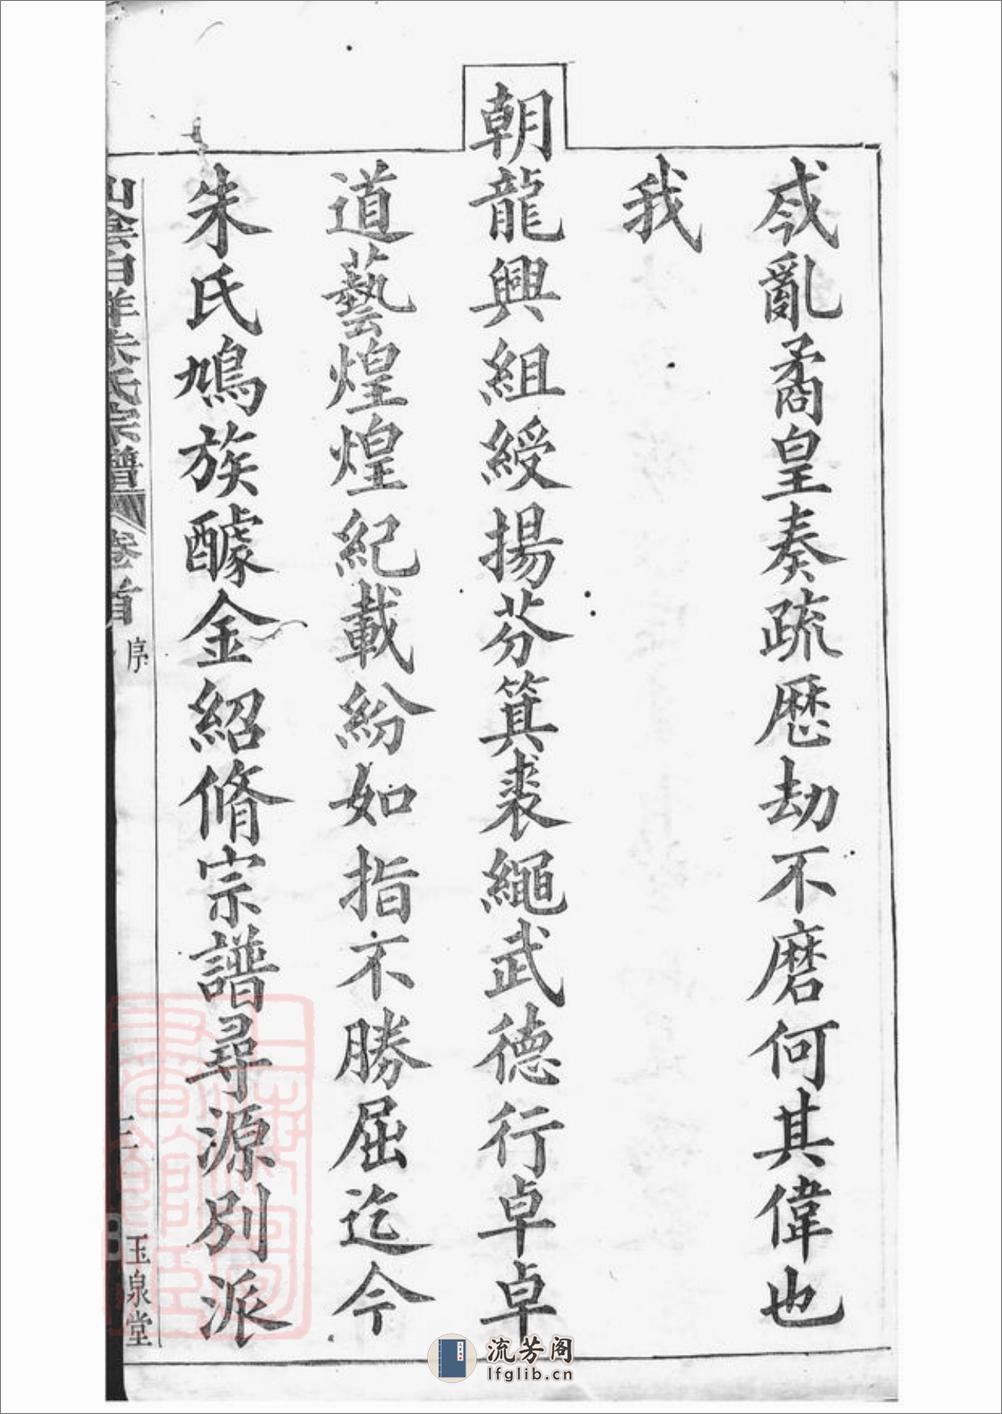 戡亂矞皇奏疏歷劫不磨何其偉也
我
朝龍興組綬揚芬箕裘繩武德行卓卓
道藝煌煌紀載紛如指不勝屈迄今
朱氏鳩族醵金紹脩宗譜尋源別派
山陰白洋朱氏宗譜
卷首
序
三
玉泉堂
流芳阁
lfglib.cn